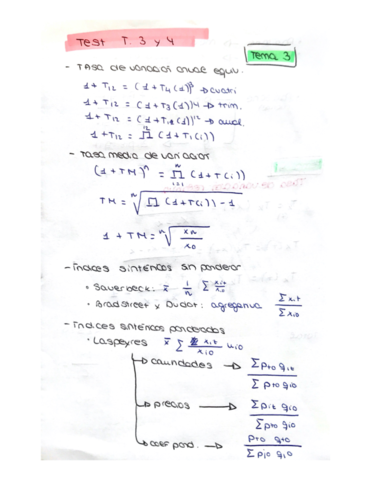 Test T. 3 y 4
Tema 3
- Tasa de variación anual equiv.
1 + T12 = (1 + T4 (1))³ → cuatri
1 + T12 = (1 + T3 (1))⁴ → trim.
1 + T12 = (1 + T12 (1))¹ → anual.
1 + T12 = ∏ (1 + T1(i))
- Tasa media de variación
(1 + TM)ⁿ = ∏ (1 + T(i))
TM = ⁿ√∏ (1 + T(i)) - 1
1 + TM = ⁿ√(xn / x0)
- Índices sintéticos sin ponderar
• Sauerbeck: x̄ 1/n Σ xit / xi0
• Bradstreet y Dudot: agregativa Σ xit / Σ xi0
- Índices sintéticos ponderados
• Laspeyres x̄ Σ xit / xi0 wi0
→ cantidades → Σ pi0 qit / Σ pi0 qi0
→ precios → Σ pit qi0 / Σ pi0 qi0
→ coef pond. → pi0 qi0 / Σ pi0 qi0